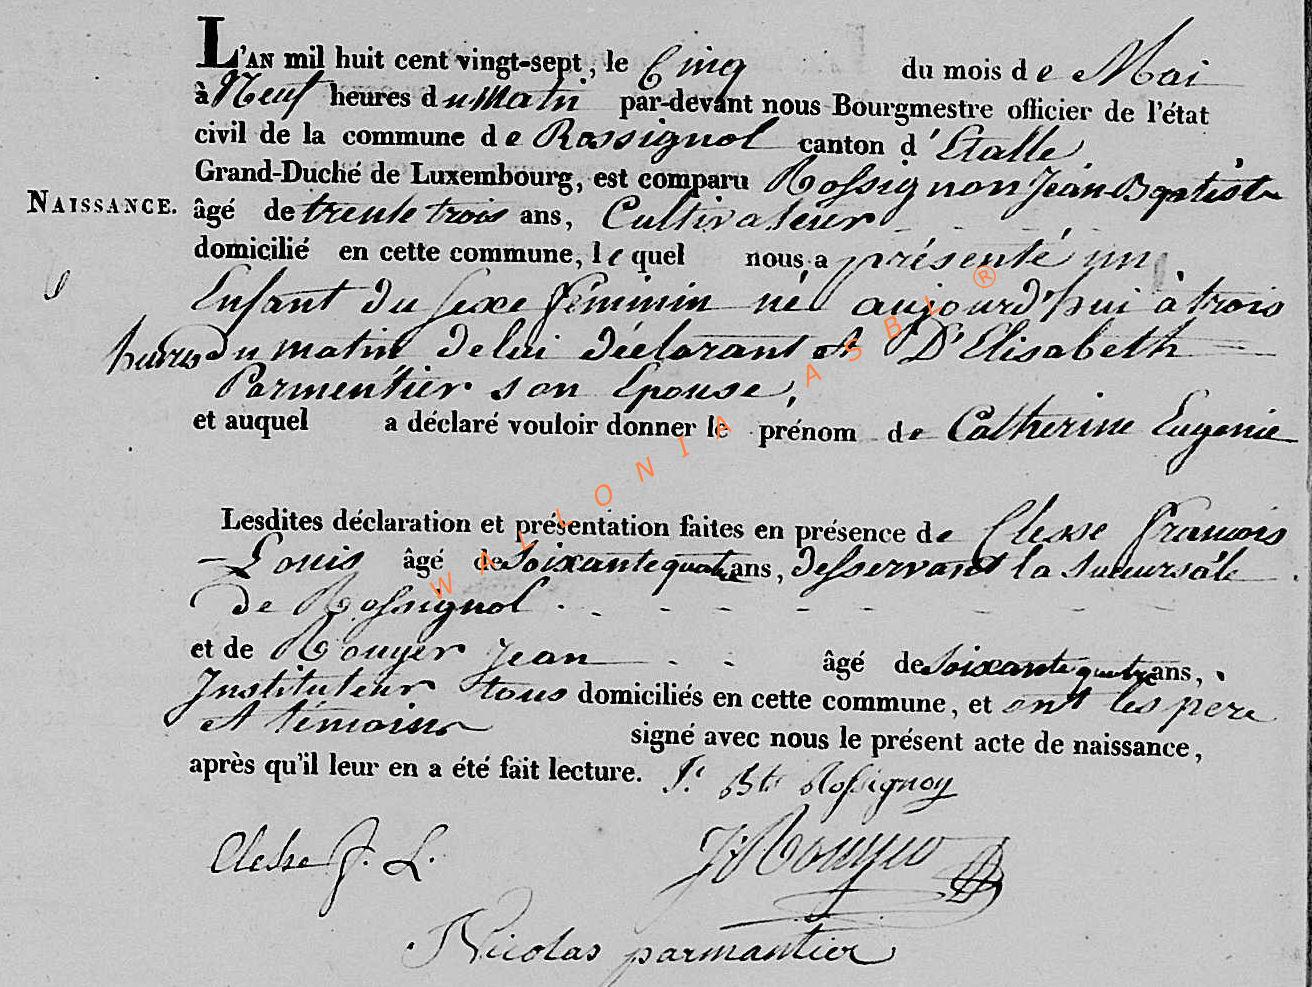 L'AN mil huit cent vingt-sept, le Cinq du mois de Mai
à Neuf heures du Matin par-devant nous Bourgmestre officier de l'état
civil de la commune de Rossignol canton d'Etalle
Grand-Duché de Luxembourg, est comparu Rossignon Jean Baptiste
NAISSANCE. âgé de trente trois ans, Cultivateur
domicilié en cette commune, lequel nous a présenté un
Enfant du sexe féminin né aujourd'hui à trois
heures du matin de lui déclarant et D' Elisabeth
Parmentier son Epouse,
et auquel a déclaré vouloir donner le prénom de Catherine Eugenie
Lesdites déclaration et présentation faites en présence de Clesse francois
Louis âgé de soixante quatre ans, desservant la sucursale
de Rossignol
et de Rouyer jean âgé de soixante quatre ans,
Instituteur tous domiciliés en cette commune, et ont les père
et témoins signé avec nous le présent acte de naissance,
après qu'il leur en a été fait lecture. J. Bte Rossignon
Clesse f. L. J Rouyer
Nicolas parmantier
WALLONIA ASBL ®